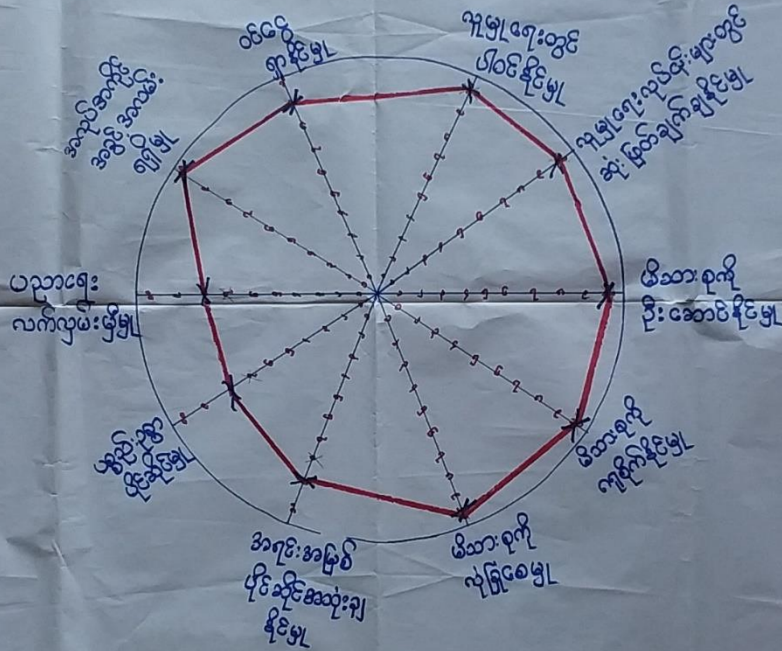 ဝင်ငွေ
ရှာနိုင်မှု
လူမှုရေးတွင်
ပါဝင်နိုင်မှု
လူမှုရေးလုပ်ငန်းများတွင်
ဆုံးဖြတ်ချက်ချနိုင်မှု
မိသားစုကို
ဦးဆောင်နိုင်မှု
မိသားစုကို
ကျစိုက်နိုင်မှု
မိသားစုကို
လုံခြုံစေမှု
အရင်းအမြစ်
ပိုင်ဆိုင်အသုံးချ
နိုင်မှု
ပစ္စည်းဥစ္စာ
ပိုင်ဆိုင်မှု
ပညာရေး
လက်လှမ်းမှီမှု
အလုပ်အကိုင်
အခွင့်အလမ်း
ရရှိမှု